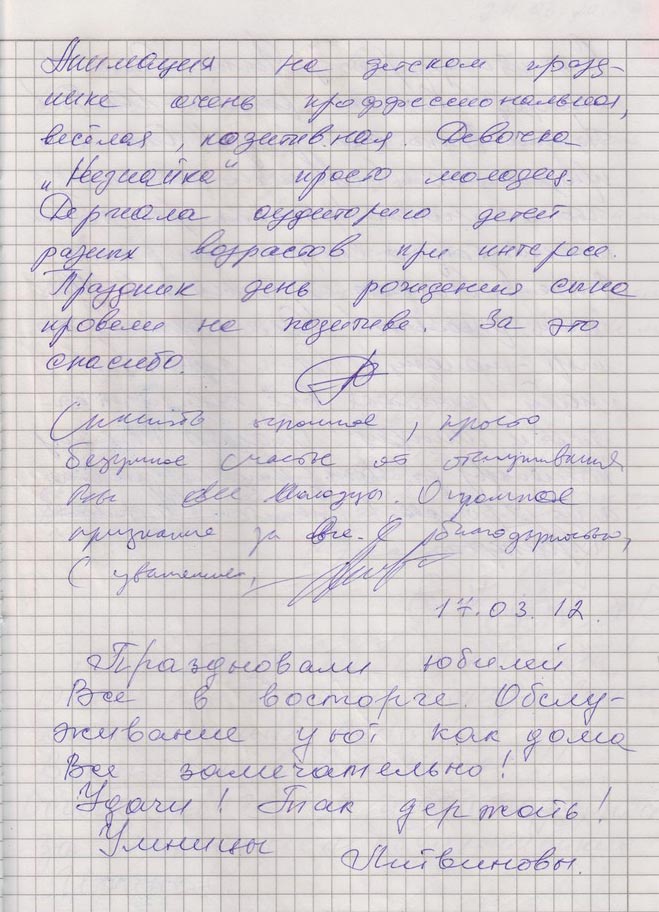 Анимация на детском празд-
нике очень проффессиональная,
весёлая, позитивная. Девочка
„Незнайка" просто молодец.
Держала аудиторию детей
разных возрастов при интересе.
Праздник день рождения сына
провели на позитиве. За это
спасибо.
Спасибо огромное, просто
безумное счастье от обслуживания
Вы все молодцы. Огромное
признание за все. С благодарностью,
С уважением,
17.03.12.
Праздновали юбилей
Все в восторге. Обслу-
живание уют как дома
Все замечательно!
Удачи! Так держать!
Умницы
Литвиновы.